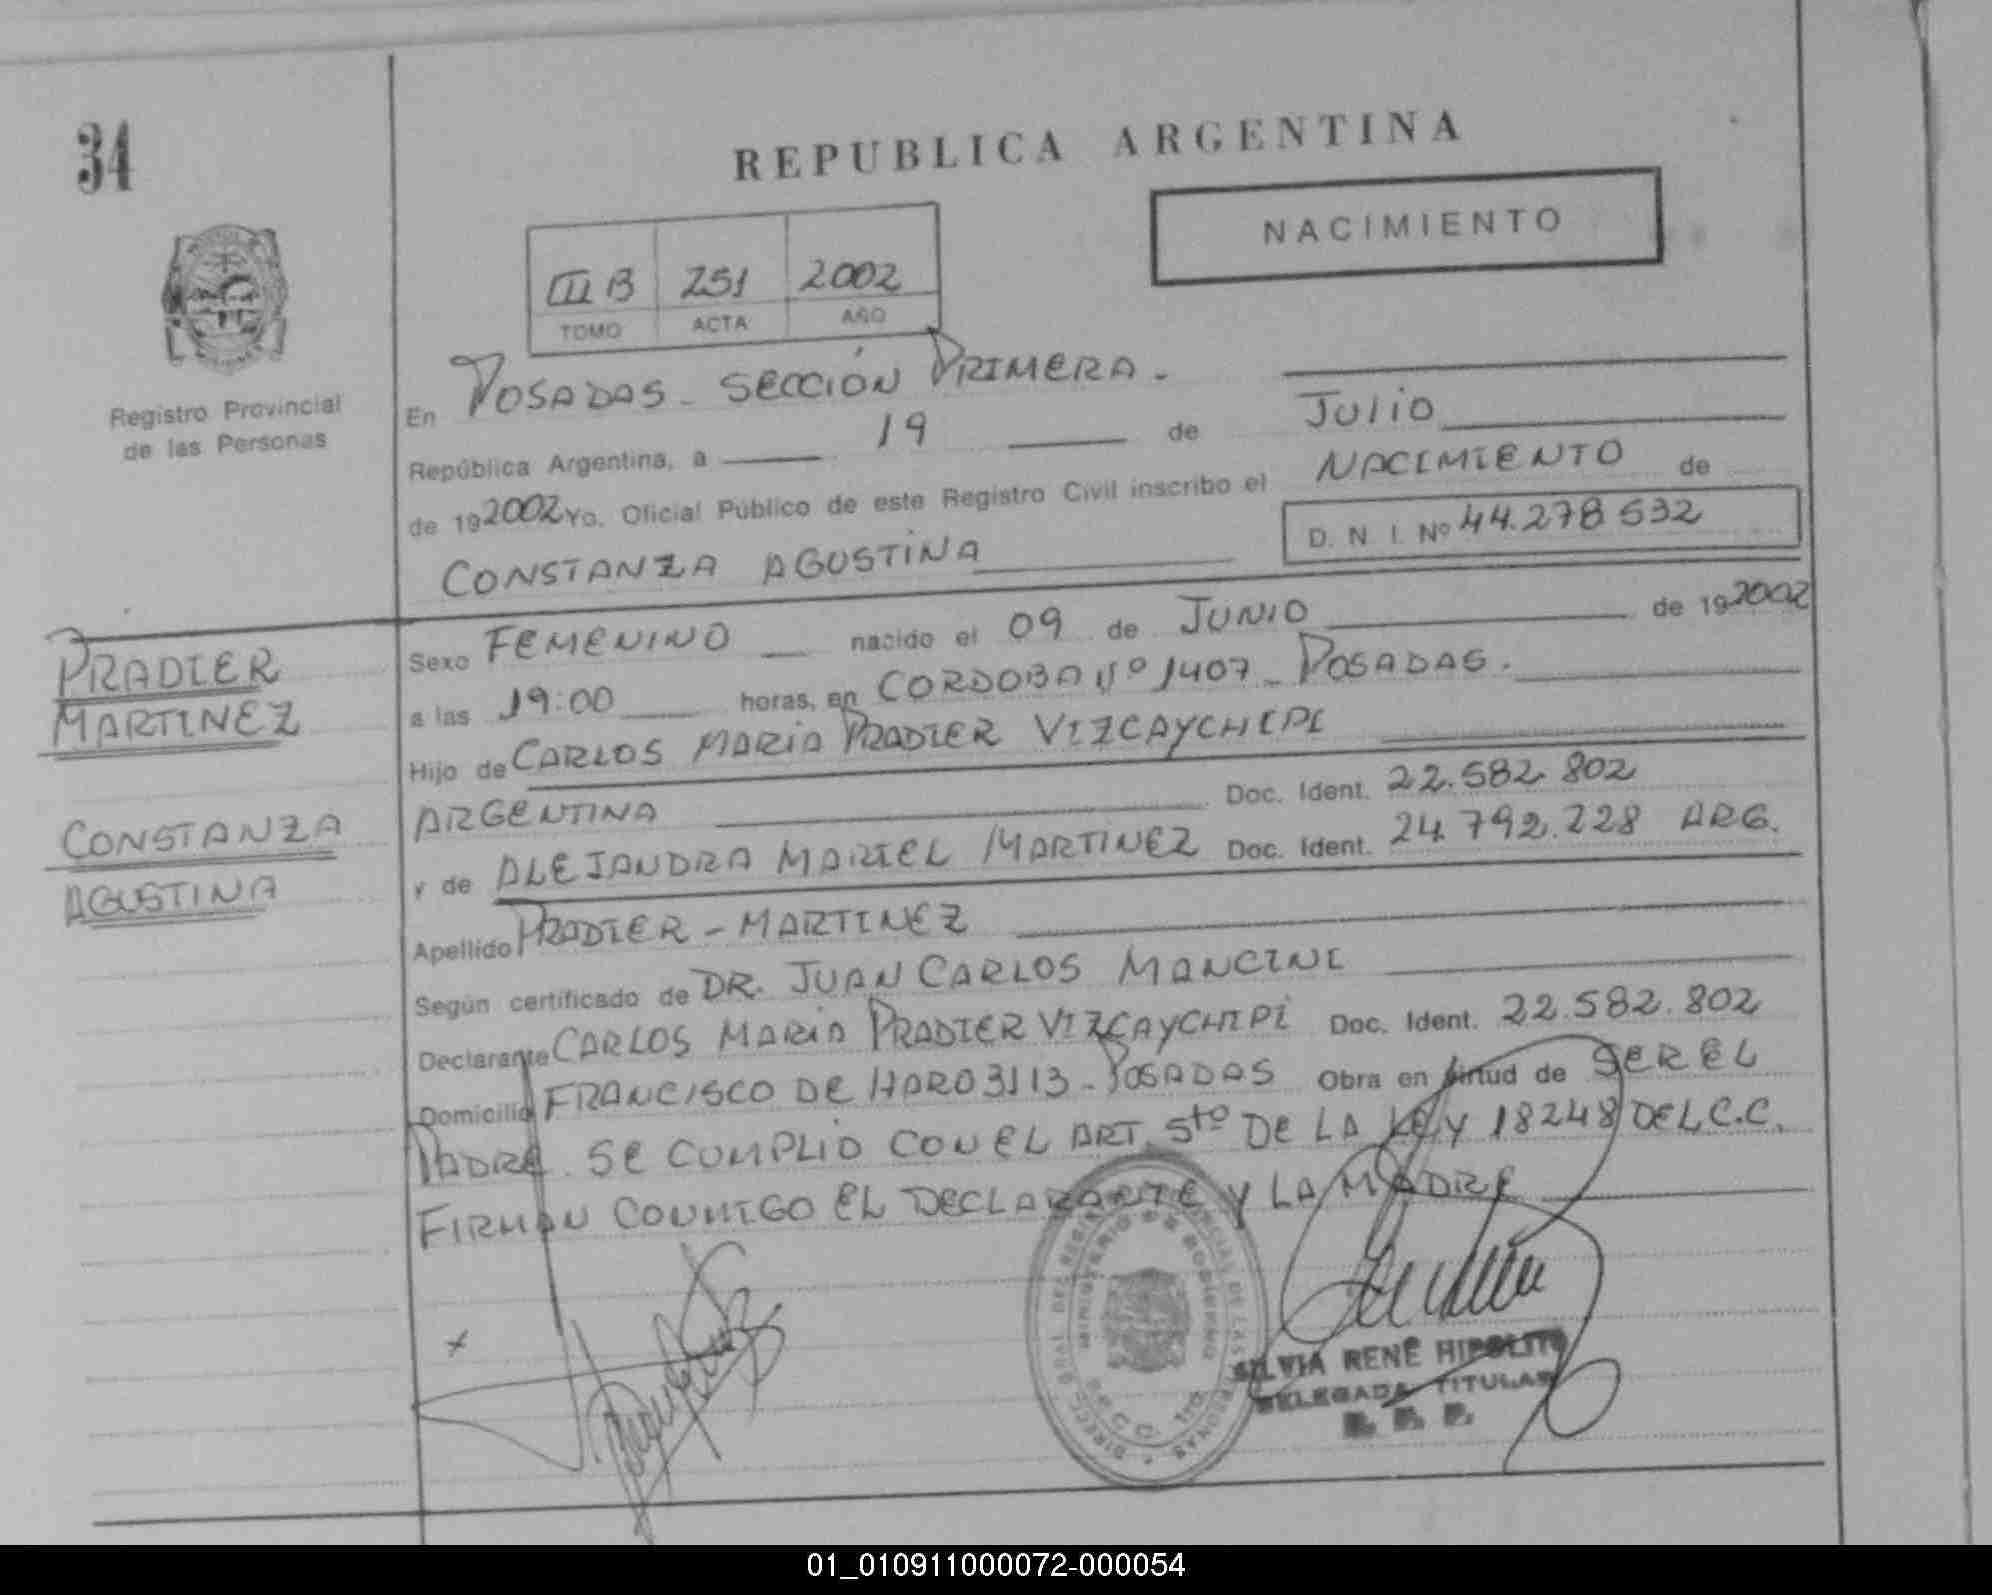 34
REPUBLICA ARGENTINA
NACIMIENTO
III B 251 2002
TOMO ACTA AÑO
Registro Provincial
de las Personas
En POSADAS - SECCIÓN PRIMERA.
República Argentina, a 19 de JULIO
de 192002 Yo, Oficial Público de este Registro Civil inscribo el NACIMIENTO de
CONSTANZA AGUSTINA D. N. I. Nº 44.278 532
PRADIER
MARTINEZ
CONSTANZA
AGUSTINA
Sexo FEMENINO nacido el 09 de JUNIO de 192002
a las 19:00 horas, en CORDOBA Nº 1407 - POSADAS.
Hijo de CARLOS MARIA PRADIER VIZCAYCHIPI
ARGENTINA Doc. Ident. 22.582 802
y de ALEJANDRA MARIEL MARTINEZ Doc. Ident. 24.792.228 ARG.
Apellido PRADIER - MARTINEZ
Según certificado de DR. JUAN CARLOS MANCINI
Declarante CARLOS MARIA PRADIER VIZCAYCHIPI Doc. Ident. 22.582.802
Domicilio FRANCISCO DE HARO 3113 - POSADAS Obra en virtud de SER EL
PADRE. SE CUMPLIO CON EL ART. 5to DE LA LEY 18248 DEL C.C.
FIRMAN CONMIGO EL DECLARANTE Y LA MADRE
SILVIA RENÉ HIPOLITO
DELEGADA TITULAR
01_010911000072-000054